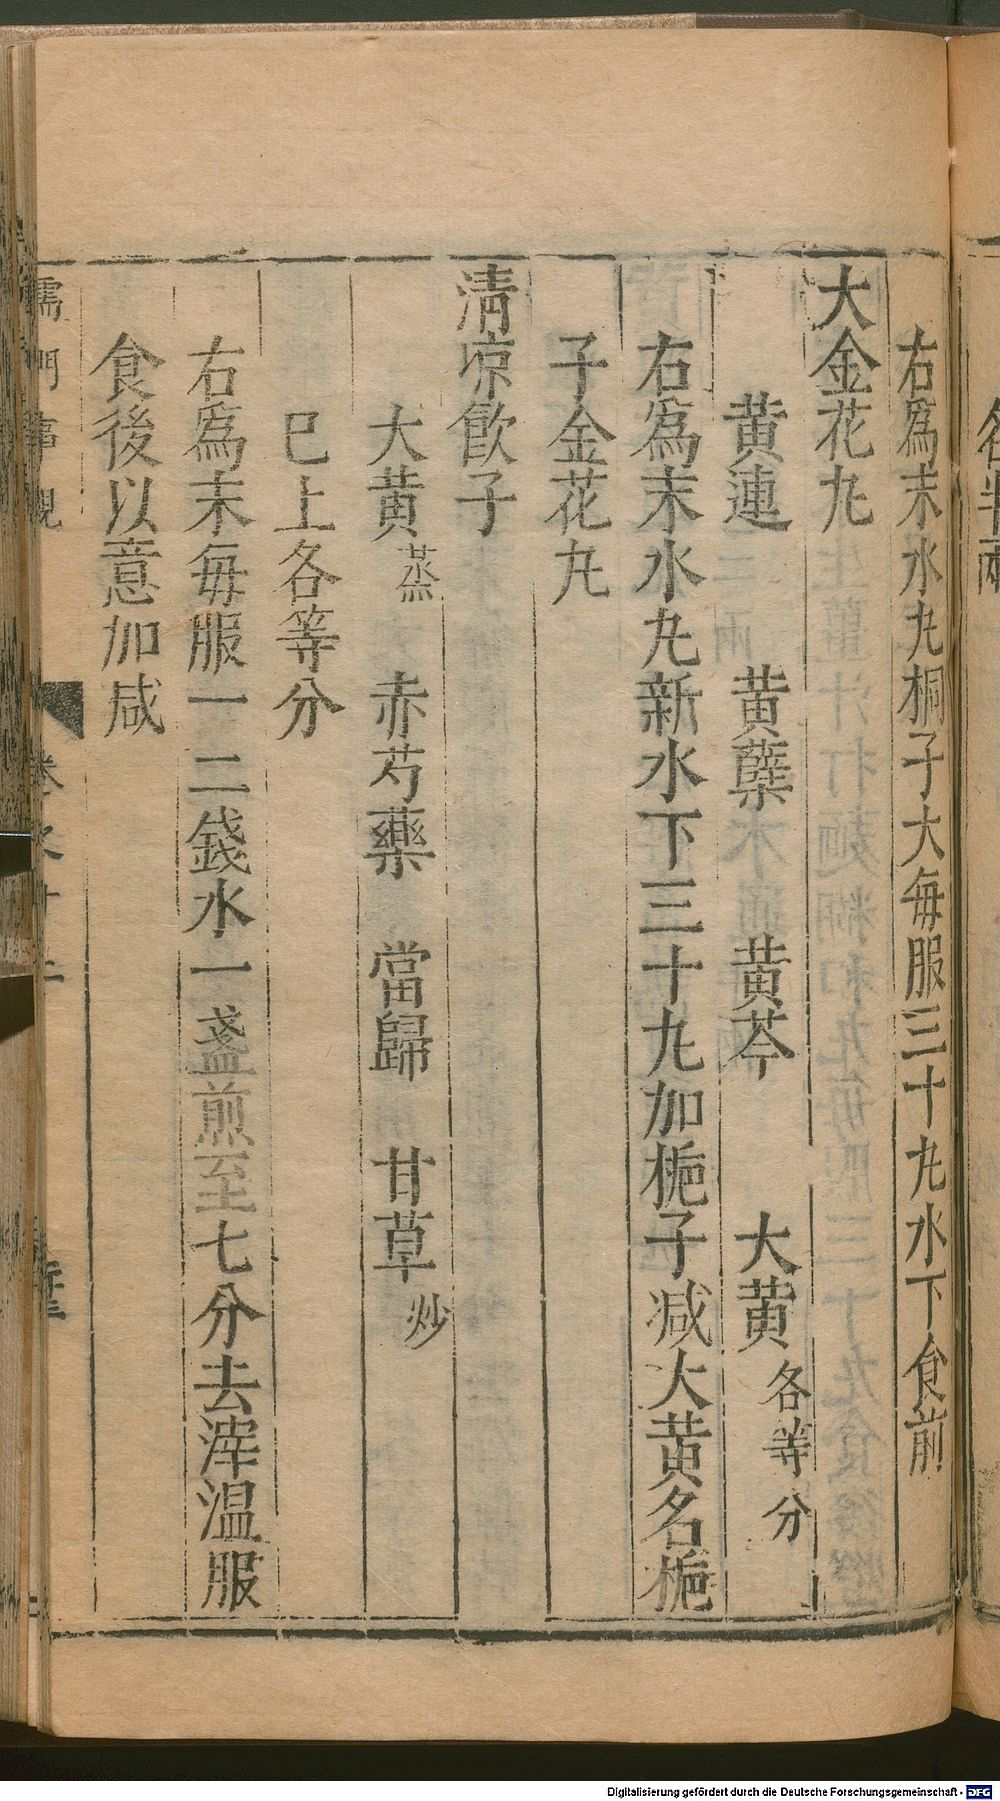 各半兩
右爲末水丸桐子大每服三十丸水下食前
大金花丸
黄連 黄蘗 黄芩 大黄各等分
右爲末水丸新水下三十丸加梔子减大黄名梔
子金花丸
清凉飮子
大黄蒸 赤芍藥 當歸 甘草炒
巳上各等分
右爲末每服一二錢水一盞煎至七分去滓温服
食後以意加减
儒門事親
Digitalisierung gefördert durch die Deutsche Forschungsgemeinschaft - DFG